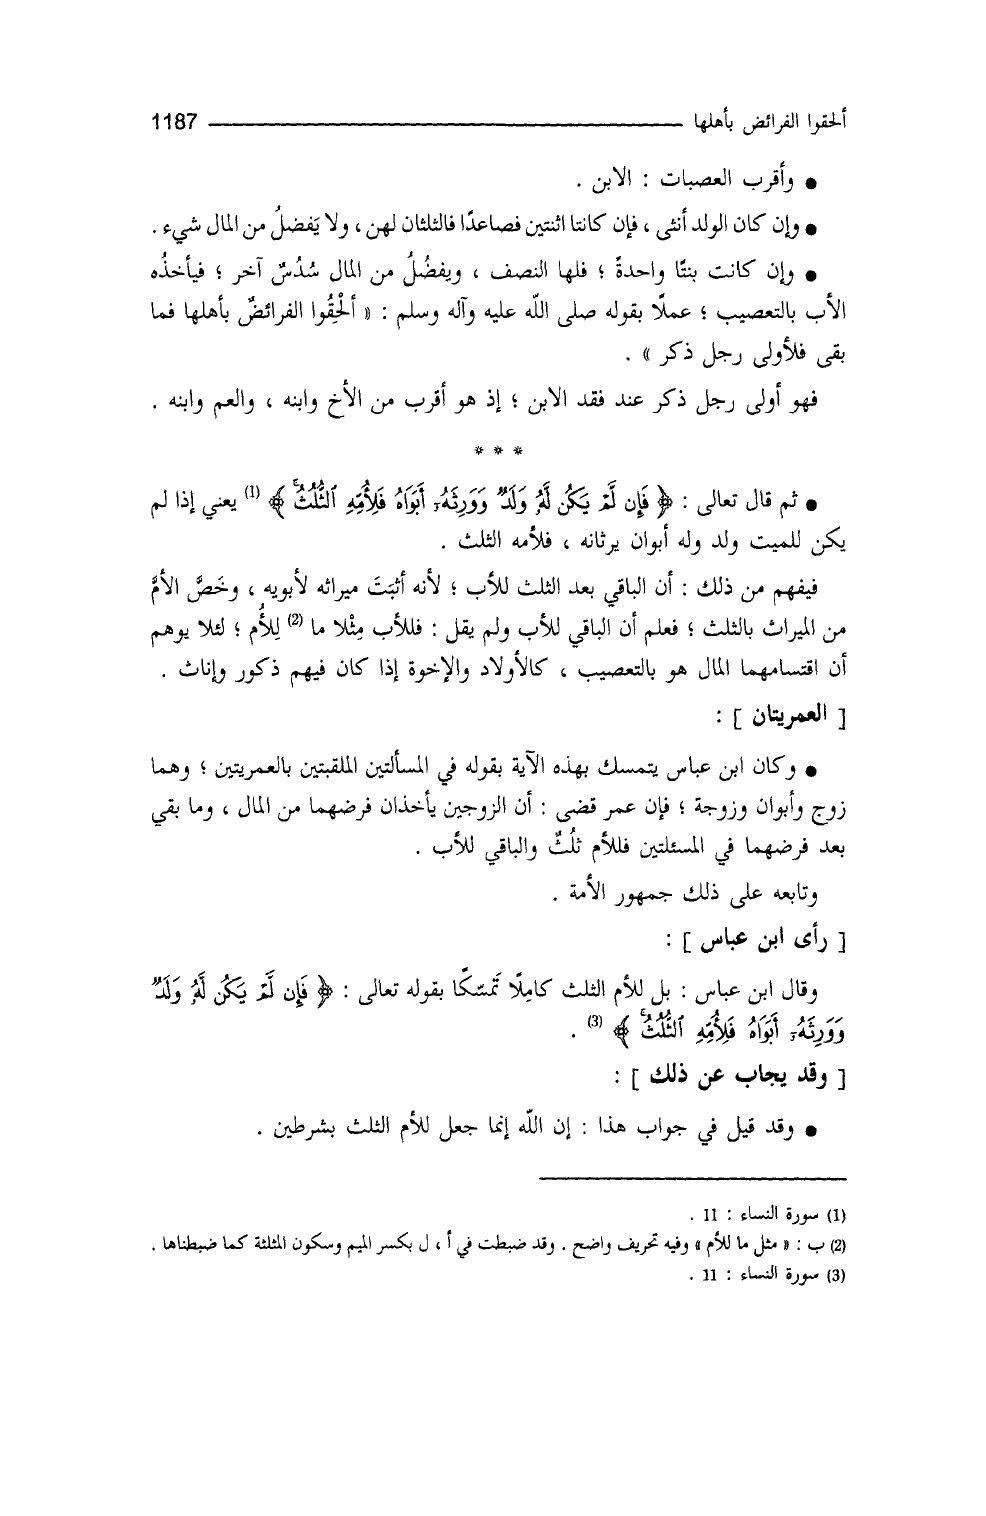 ألحقوا الفرائض بأهلها 1187
● وأقرب العصبات : الابن .
● وإن كان الولد أنثى ، فإن كانتا اثنتين فصاعدًا فالثلثان لهن ، ولا يَفضلُ من المال شيء .
● وإن كانت بنتًا واحدةً ؛ فلها النصف ، ويفضُلُ من المال سُدُسٌ آخر ؛ فيأخذُه
الأب بالتعصيب ؛ عملًا بقوله صلى الله عليه وآله وسلم : « أَلْحِقُوا الفرائضٌ بأهلها فما
بقى فلأولى رجل ذكر » .
فهو أولى رجل ذكر عند فقد الابن ؛ إذ هو أقرب من الأخ وابنه ، والعم وابنه .
* * *
● ثم قال تعالى : ﴿ فَإِن لَّمْ يَكُن لَّهُۥ وَلَدٌ وَوَرِثَهُۥٓ أَبَوَاهُ فَلِأُمِّهِ ٱلثُّلُثُۚ ﴾ (1) يعني إذا لم
يكن للميت ولد وله أبوان يرثانه ، فلأمه الثلث .
فيفهم من ذلك : أن الباقي بعد الثلث للأب ؛ لأنه أثبَتَ ميراثه لأبويه ، وخَصَّ الأمَّ
من الميراث بالثلث ؛ فعلم أن الباقي للأب ولم يقل : فللأب مِثْلا ما (2) لِلأُم ؛ لئلا يوهم
أن اقتسامهما المال هو بالتعصيب ، كالأولاد والإخوة إذا كان فيهم ذكور وإناث .
[ العمريتان ] :
● وكان ابن عباس يتمسك بهذه الآية بقوله في المسألتين الملقبتين بالعمريتين ؛ وهما
زوج وأبوان وزوجة ؛ فإن عمر قضى : أن الزوجين يأخذان فرضهما من المال ، وما بقي
بعد فرضهما في المسئلتين فللأم ثلُثٌ والباقي للأب .
وتابعه على ذلك جمهور الأمة .
[ رأى ابن عباس ] :
وقال ابن عباس : بل للأم الثلث كامِلًا تَمسّكًا بقوله تعالى : ﴿ فَإِن لَّمْ يَكُن لَّهُۥ وَلَدٌ
وَوَرِثَهُۥٓ أَبَوَاهُ فَلِأُمِّهِ ٱلثُّلُثُۚ ﴾ (3) .
[ وقد يجاب عن ذلك ] :
● وقد قيل في جواب هذا : إن الله إنما جعل للأم الثلث بشرطين .
(1) سورة النساء : 11 .
(2) ب : « مثل ما للأم » وفيه تحريف واضح . وقد ضبطت في أ ، ل بكسر الميم وسكون المثلثة كما ضبطناها .
(3) سورة النساء : 11 .